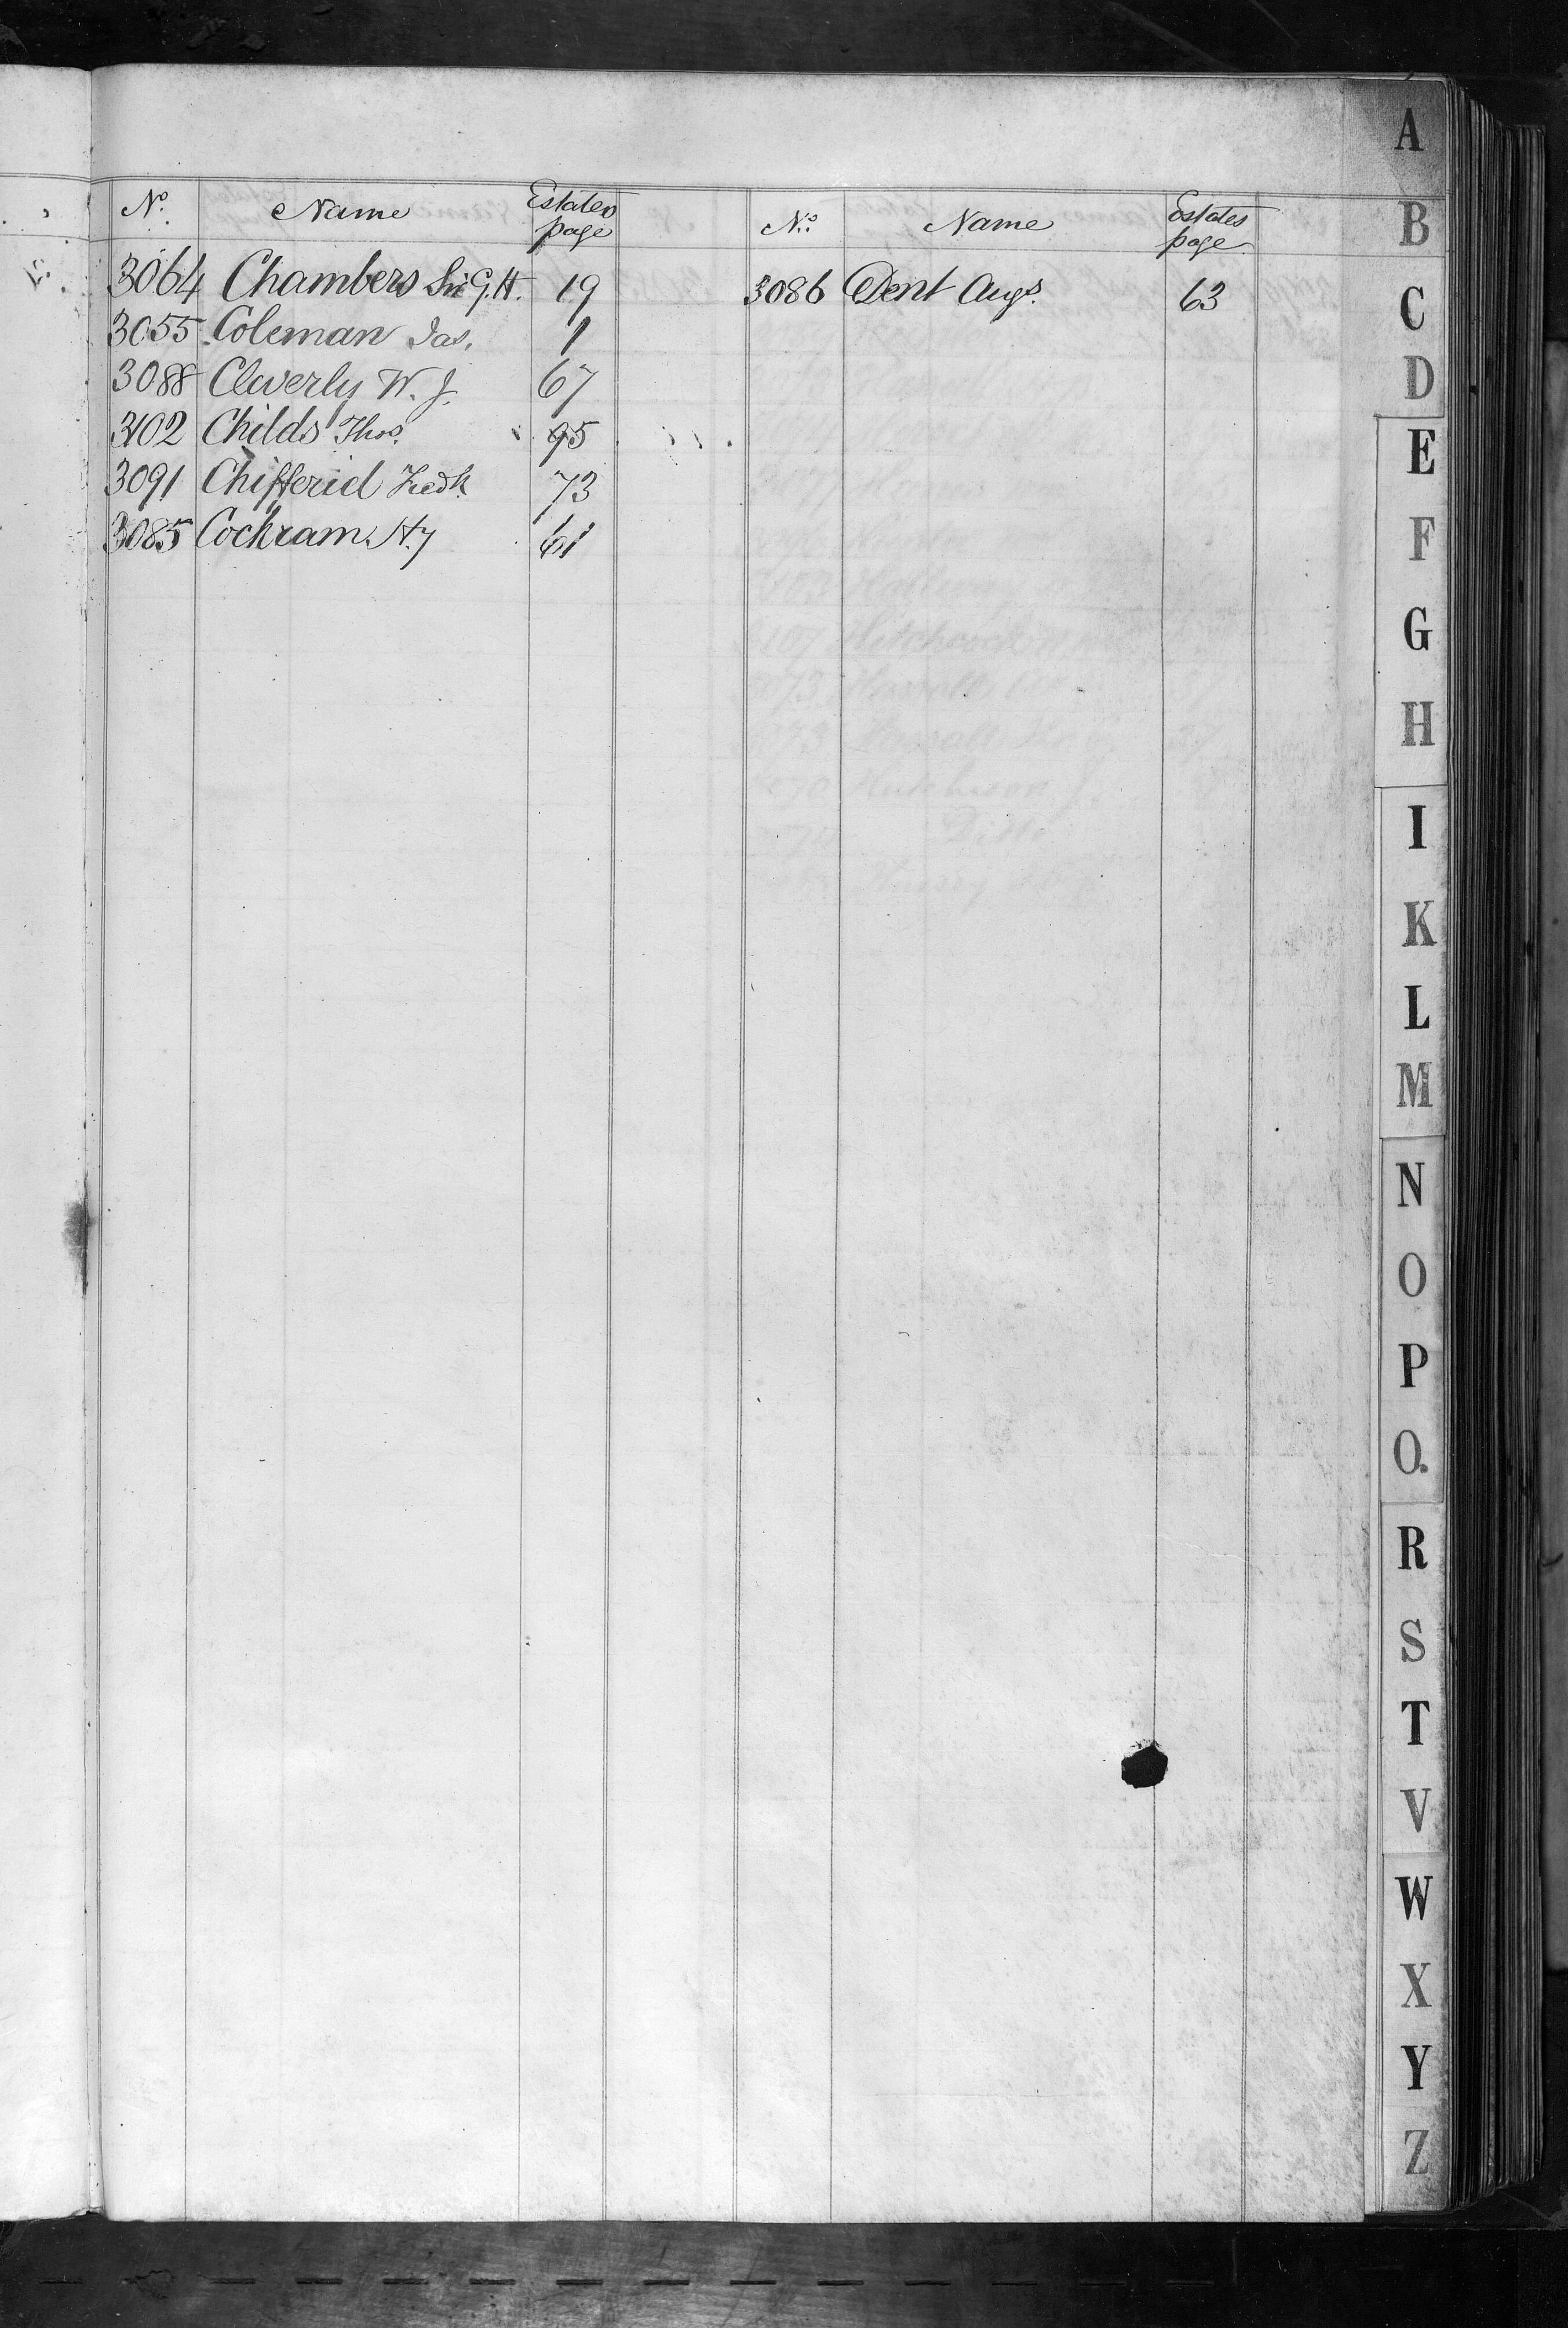 No. Name Estates page
3064 Chambers Sir G. H. 19
3055 Coleman Jas. 1
3088 Cleverly W. J. 67
3102 Childs Thos. 95
3091 Chifferiel Fredk. 73
3085 Cochram Hy 61
No. Name Estates page
3086 Dent Augs. 63
A
B
C
D
E
F
G
H
I
K
L
M
N
O
P
Q.
R
S
T
V
W
X
Y
Z